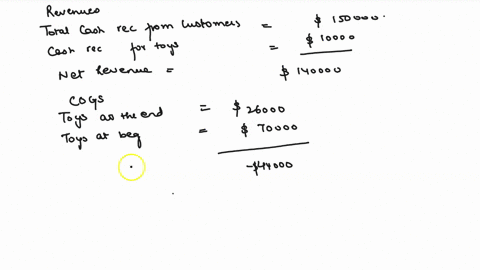 Revenues
Total Cash rec from customers = $ 150000.
Cash rec for toys = $ 10000
Net Revenue = $ 140000
COGS
Toys as the end = $ 26000
Toys at beg = $ 70000
-$44000